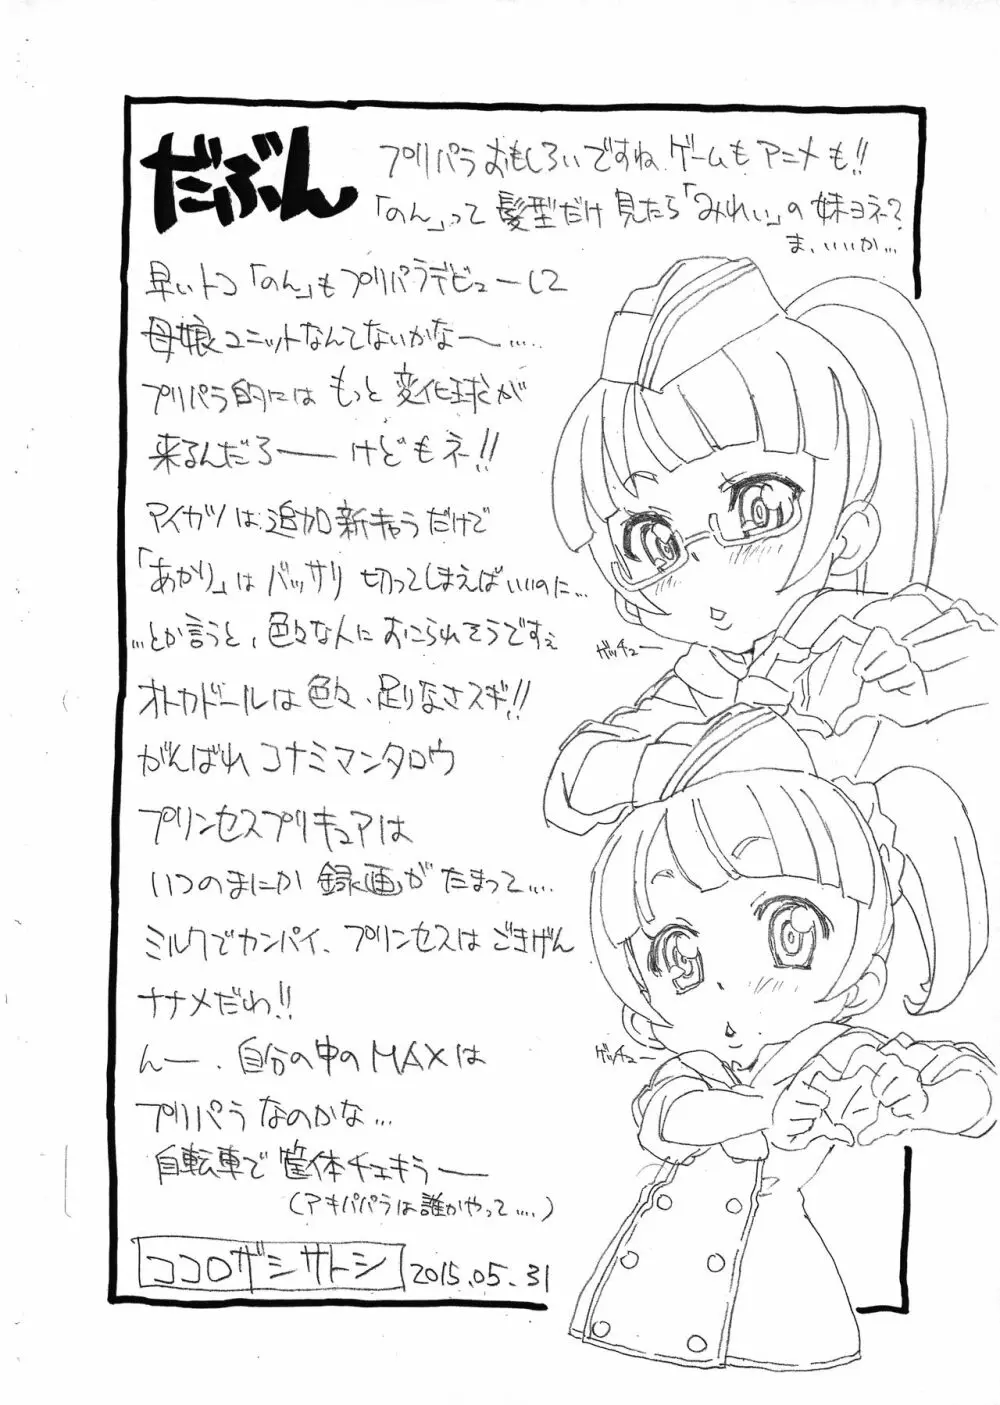 だぶん
プリパラおもしろいですね ゲームもアニメも!!
「のん」って髪型だけ見たら「みれぃ」の妹ヨネ?
ま、いいか…
早いトコ「のん」もプリパラデビューして
母娘ユニットなんてないかな〜……
プリパラ的にはもっと変化球が
来るんだろーーけどもネ!!
アイカツは追加新キャラだけで
「あかり」はバッサリ切ってしまえばいいのに…
…とか言うと、色々な人におこられそうですぇ
オトカドールは色々、足りなさスギ!!
がんばれコナミマンタロウ
プリンセスプリキュアは
いつのまにか録画がたまって….
ミルクでカンパイ、プリンセスはごきげん
ナナメだわ!!
んー、自分の中のMAXは
プリパラなのかな…
自転車で筐体チェキラー
(アキパパラは誰がやって….)
ココロザシサトシ 2015.05.31
ガッチュー
ゲッチュー